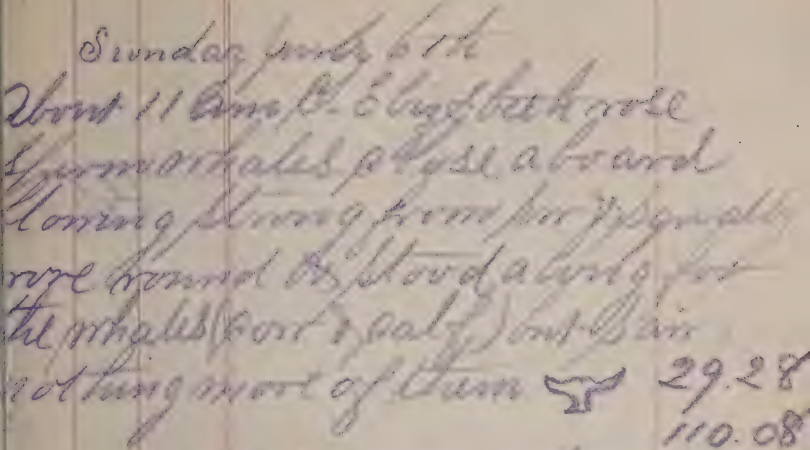 Sunday July 6th
About 11 Am C. Elizabeth rose
Spermwhales close aboard
blowing strong from & squally
wore round & stood along for
the whales (cow & calf) but saw
nothing more of them 29.28
110.08